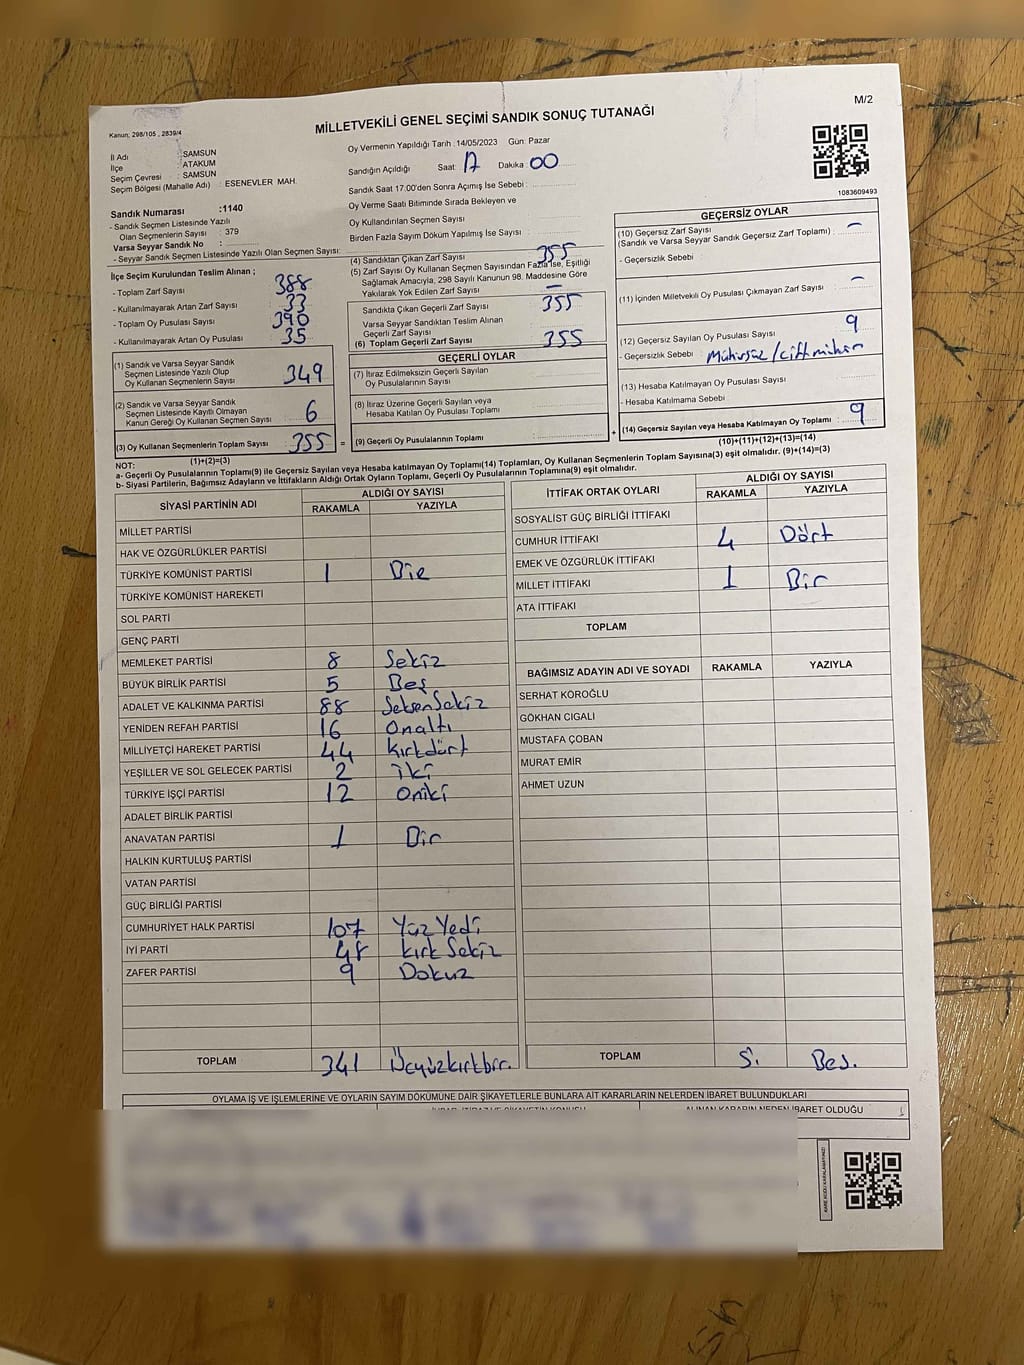 M/2
Kanun; 298/105 , 2839/4
MİLLETVEKİLİ GENEL SEÇİMİ SANDIK SONUÇ TUTANAĞI
İl Adı : SAMSUN
İlçe : ATAKUM
Seçim Çevresi : SAMSUN
Seçim Bölgesi (Mahalle Adı) : ESENEVLER MAH.
Sandık Numarası :1140
- Sandık Seçmen Listesinde Yazılı
Olan Seçmenlerin Sayısı : 379
Varsa Seyyar Sandık No :
- Seyyar Sandık Seçmen Listesinde Yazılı Olan Seçmen Sayısı:
Oy Vermenin Yapıldığı Tarih : 14/05/2023 Gün: Pazar
Sandığın Açıldığı Saat: 17 Dakika : 00
Sandık Saat 17:00'den Sonra Açımış İse Sebebi :
Oy Verme Saati Bitiminde Sırada Bekleyen ve
Oy Kullandırılan Seçmen Sayısı
Birden Fazla Sayım Döküm Yapılmış İse Sayısı :
1083609493
İlçe Seçim Kurulundan Teslim Alınan ;
- Toplam Zarf Sayısı 388
- Kullanılmayarak Artan Zarf Sayısı 33
- Toplam Oy Pusulası Sayısı 390
- Kullanılmayarak Artan Oy Pusulası 35
(1) Sandık ve Varsa Seyyar Sandık
Seçmen Listesinde Yazılı Olup
Oy Kullanan Seçmenlerin Sayısı 349
(2) Sandık ve Varsa Seyyar Sandık
Seçmen Listesinde Kayıtlı Olmayan
Kanun Gereği Oy Kullanan Seçmen Sayısı 6
(3) Oy Kullanan Seçmenlerin Toplam Sayısı 355 =
(1)+(2)=(3)
(4) Sandıktan Çıkan Zarf Sayısı 355
(5) Zarf Sayısı Oy Kullanan Seçmen Sayısından Fazla İse, Eşitliği
Sağlamak Amacıyla, 298 Sayılı Kanunun 98. Maddesine Göre
Yakılarak Yok Edilen Zarf Sayısı —
Sandıkta Çıkan Geçerli Zarf Sayısı 355
Varsa Seyyar Sandıktan Teslim Alınan
Geçerli Zarf Sayısı
(6) Toplam Geçerli Zarf Sayısı 355
GEÇERLİ OYLAR
(7) İtiraz Edilmeksizin Geçerli Sayılan
Oy Pusulalarının Sayısı
(8) İtiraz Üzerine Geçerli Sayılan veya
Hesaba Katılan Oy Pusulası Toplamı
(9) Geçerli Oy Pusulalarının Toplamı +
GEÇERSİZ OYLAR
(10) Geçersiz Zarf Sayısı —
(Sandık ve Varsa Seyyar Sandık Geçersiz Zarf Toplamı) :
- Geçersizlik Sebebi :
(11) İçinden Milletvekili Oy Pusulası Çıkmayan Zarf Sayısı —
(12) Geçersiz Sayılan Oy Pusulası Sayısı 9
- Geçersizlik Sebebi : Mühürsüz/Çift mühür
(13) Hesaba Katılmayan Oy Pusulası Sayısı
- Hesaba Katılmama Sebebi :
(14) Geçersiz Sayılan veya Hesaba Katılmayan Oy Toplamı : 9
(10)+(11)+(12)+(13)=(14)
NOT:
a- Geçerli Oy Pusulalarının Toplamı(9) ile Geçersiz Sayılan veya Hesaba katılmayan Oy Toplamı(14) Toplamları, Oy Kullanan Seçmenlerin Toplam Sayısına(3) eşit olmalıdır. (9)+(14)=(3)
b- Siyasi Partilerin, Bağımsız Adayların ve İttifakların Aldığı Ortak Oyların Toplamı, Geçerli Oy Pusulalarının Toplamına(9) eşit olmalıdır.
SİYASİ PARTİNİN ADI ALDIĞI OY SAYISI
RAKAMLA YAZIYLA
MİLLET PARTİSİ
HAK VE ÖZGÜRLÜKLER PARTİSİ
TÜRKİYE KOMÜNİST PARTİSİ 1 Bir
TÜRKİYE KOMÜNİST HAREKETİ
SOL PARTİ
GENÇ PARTİ
MEMLEKET PARTİSİ 8 Sekiz
BÜYÜK BİRLİK PARTİSİ 5 Beş
ADALET VE KALKINMA PARTİSİ 88 SeksenSekiz
YENİDEN REFAH PARTİSİ 16 Onaltı
MİLLİYETÇİ HAREKET PARTİSİ 44 Kırkdört
YEŞİLLER VE SOL GELECEK PARTİSİ 2 iki
TÜRKİYE İŞÇİ PARTİSİ 12 Oniki
ADALET BİRLİK PARTİSİ
ANAVATAN PARTİSİ 1 Bir
HALKIN KURTULUŞ PARTİSİ
VATAN PARTİSİ
GÜÇ BİRLİĞİ PARTİSİ
CUMHURİYET HALK PARTİSİ 107 Yüz Yedi
İYİ PARTİ 48 Kırk Sekiz
ZAFER PARTİSİ 9 Dokuz
TOPLAM 341 Üçyüzkırkbir.
İTTİFAK ORTAK OYLARI ALDIĞI OY SAYISI
RAKAMLA YAZIYLA
SOSYALİST GÜÇ BİRLİĞİ İTTİFAKI
CUMHUR İTTİFAKI 4 Dört
EMEK VE ÖZGÜRLÜK İTTİFAKI
MİLLET İTTİFAKI 1 Bir
ATA İTTİFAKI
TOPLAM
BAĞIMSIZ ADAYIN ADI VE SOYADI RAKAMLA YAZIYLA
SERHAT KÖROĞLU
GÖKHAN CIGALI
MUSTAFA ÇOBAN
MURAT EMİR
AHMET UZUN
TOPLAM 5. Beş.
OYLAMA İŞ VE İŞLEMLERİNE VE OYLARIN SAYIM DÖKÜMÜNE DAİR ŞİKAYETLERLE BUNLARA AİT KARARLARIN NELERDEN İBARET BULUNDUKLARI
ALINAN KARARIN NEDEN İBARET OLDUĞU